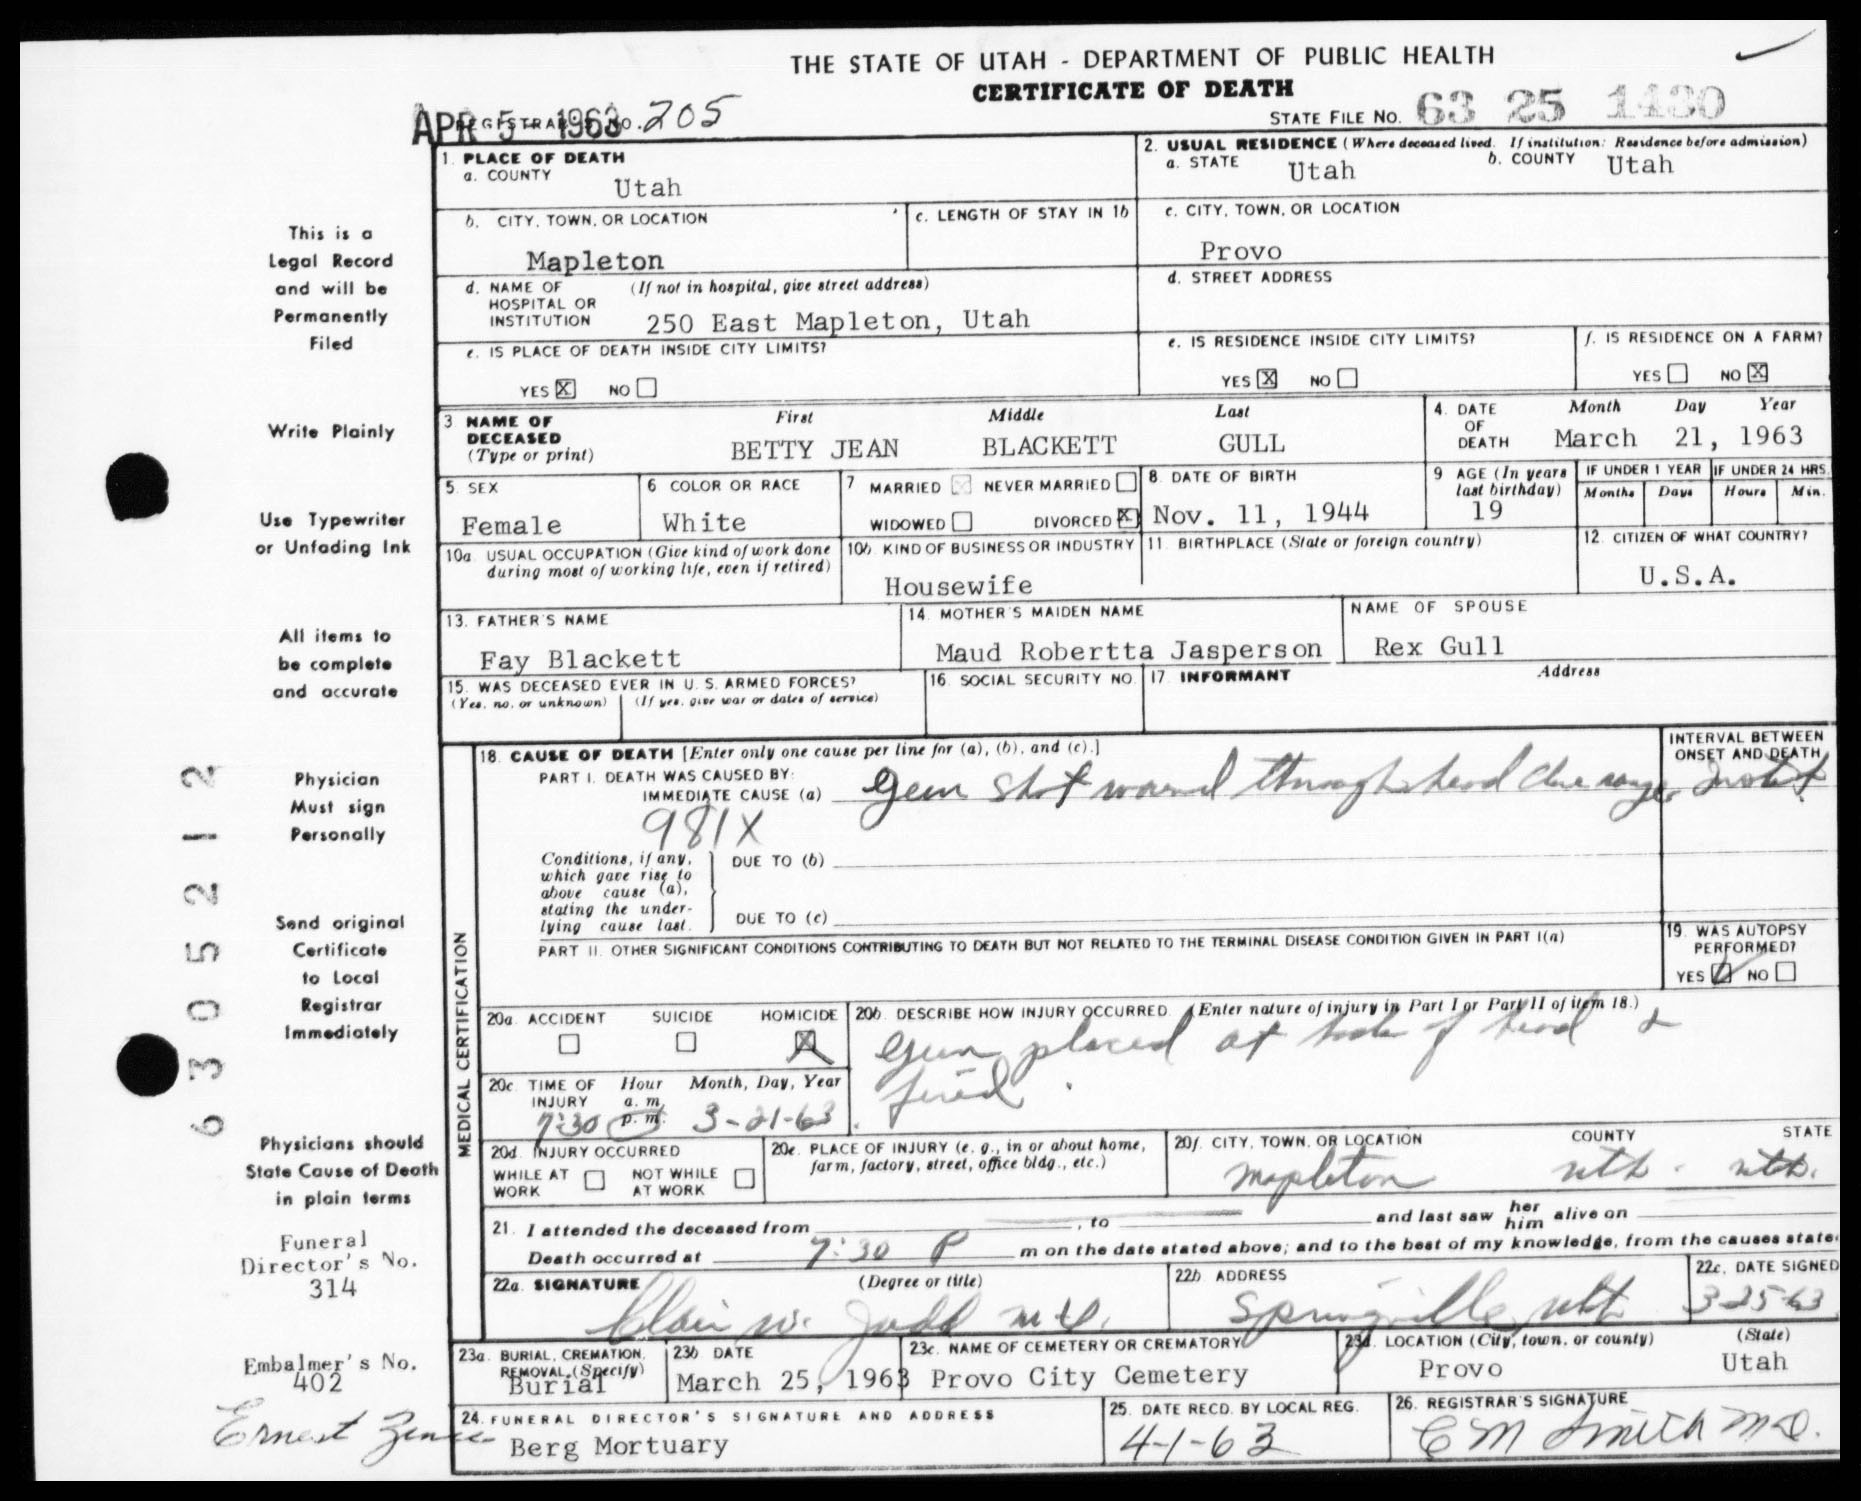 THE STATE OF UTAH - DEPARTMENT OF PUBLIC HEALTH
CERTIFICATE OF DEATH
APR 5 - 1963 REGISTRAR'S NO. 205
STATE FILE NO. 63 25 1430
1. PLACE OF DEATH
a. COUNTY Utah
2. USUAL RESIDENCE (Where deceased lived. If institution: Residence before admission)
a. STATE Utah b. COUNTY Utah
b. CITY, TOWN, OR LOCATION Mapleton
c. LENGTH OF STAY IN 1b
c. CITY, TOWN, OR LOCATION
Provo
d. NAME OF HOSPITAL OR INSTITUTION (If not in hospital, give street address)
250 East Mapleton, Utah
d. STREET ADDRESS
e. IS PLACE OF DEATH INSIDE CITY LIMITS?
YES X NO
e. IS RESIDENCE INSIDE CITY LIMITS?
YES X NO
f. IS RESIDENCE ON A FARM?
YES NO X
3 NAME OF DECEASED (Type or print)
First Middle Last
BETTY JEAN BLACKETT GULL
4. DATE OF DEATH Month Day Year
March 21, 1963
5. SEX
Female
6 COLOR OR RACE
White
7 MARRIED X NEVER MARRIED
WIDOWED DIVORCED X
8. DATE OF BIRTH
Nov. 11, 1944
9 AGE (In years last birthday)
19
IF UNDER 1 YEAR
Months Days
IF UNDER 24 HRS.
Hours Min.
10a. USUAL OCCUPATION (Give kind of work done
during most of working life, even if retired)
10b. KIND OF BUSINESS OR INDUSTRY
Housewife
11. BIRTHPLACE (State or foreign country)
12. CITIZEN OF WHAT COUNTRY?
U.S.A.
13. FATHER'S NAME
Fay Blackett
14. MOTHER'S MAIDEN NAME
Maud Robertta Jasperson
NAME OF SPOUSE
Rex Gull
15. WAS DECEASED EVER IN U. S. ARMED FORCES?
(Yes, no, or unknown) (If yes, give war or dates of service)
16. SOCIAL SECURITY NO.
17. INFORMANT Address
MEDICAL CERTIFICATION
18. CAUSE OF DEATH [Enter only one cause per line for (a), (b), and (c).]
PART I. DEATH WAS CAUSED BY:
IMMEDIATE CAUSE (a) Gun shot wound through head close range
INTERVAL BETWEEN ONSET AND DEATH
981X
Conditions, if any,
which gave rise to
above cause (a),
stating the under-
lying cause last.
DUE TO (b)
DUE TO (c)
PART II. OTHER SIGNIFICANT CONDITIONS CONTRIBUTING TO DEATH BUT NOT RELATED TO THE TERMINAL DISEASE CONDITION GIVEN IN PART I(a)
19. WAS AUTOPSY PERFORMED?
YES NO
20a. ACCIDENT SUICIDE HOMICIDE X
20b. DESCRIBE HOW INJURY OCCURRED. (Enter nature of injury in Part I or Part II of item 18.)
Gun placed at back of head &
fired.
20c TIME OF INJURY Hour Month, Day, Year
a. m.
7:30 p. m. 3-21-63
20d. INJURY OCCURRED
WHILE AT WORK NOT WHILE AT WORK
20e. PLACE OF INJURY (e. g., in or about home,
farm, factory, street, office bldg., etc.)
20f. CITY, TOWN, OR LOCATION COUNTY STATE
Mapleton Utah. Utah.
21. I attended the deceased from , to and last saw her him alive on
Death occurred at 7:30 P m on the date stated above; and to the best of my knowledge, from the causes state
22a. SIGNATURE (Degree or title)
Clair W. Judd M.D.
22b. ADDRESS
Springville Utah
22c. DATE SIGNED
3-25-63
23a. BURIAL, CREMATION, REMOVAL, (Specify)
Burial
23b DATE
March 25, 1963
23c. NAME OF CEMETERY OR CREMATORY
Provo City Cemetery
23d. LOCATION (City, town, or county) (State)
Provo Utah
24. FUNERAL DIRECTOR'S SIGNATURE AND ADDRESS
Berg Mortuary
25. DATE RECD. BY LOCAL REG.
4-1-63
26. REGISTRAR'S SIGNATURE
C M Smith M.D.
This is a
Legal Record
and will be
Permanently
Filed
Write Plainly
Use Typewriter
or Unfading Ink
All items to
be complete
and accurate
Physician
Must sign
Personally
Send original
Certificate
to Local
Registrar
Immediately
Physicians should
State Cause of Death
in plain terms
Funeral
Director's No.
314
Embalmer's No.
402
Ernest
6305212